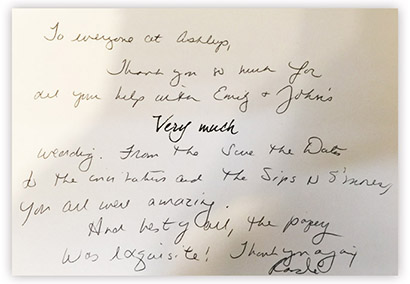 To everyone at Ashleys,
Thank you so much for
all your help with Emily & John's
Very much
wedding. From the Save the Dates
to the invitations and the Sips N S'mores,
You all were amazing.
And best of all, the papery
was exquisite! Thank you again